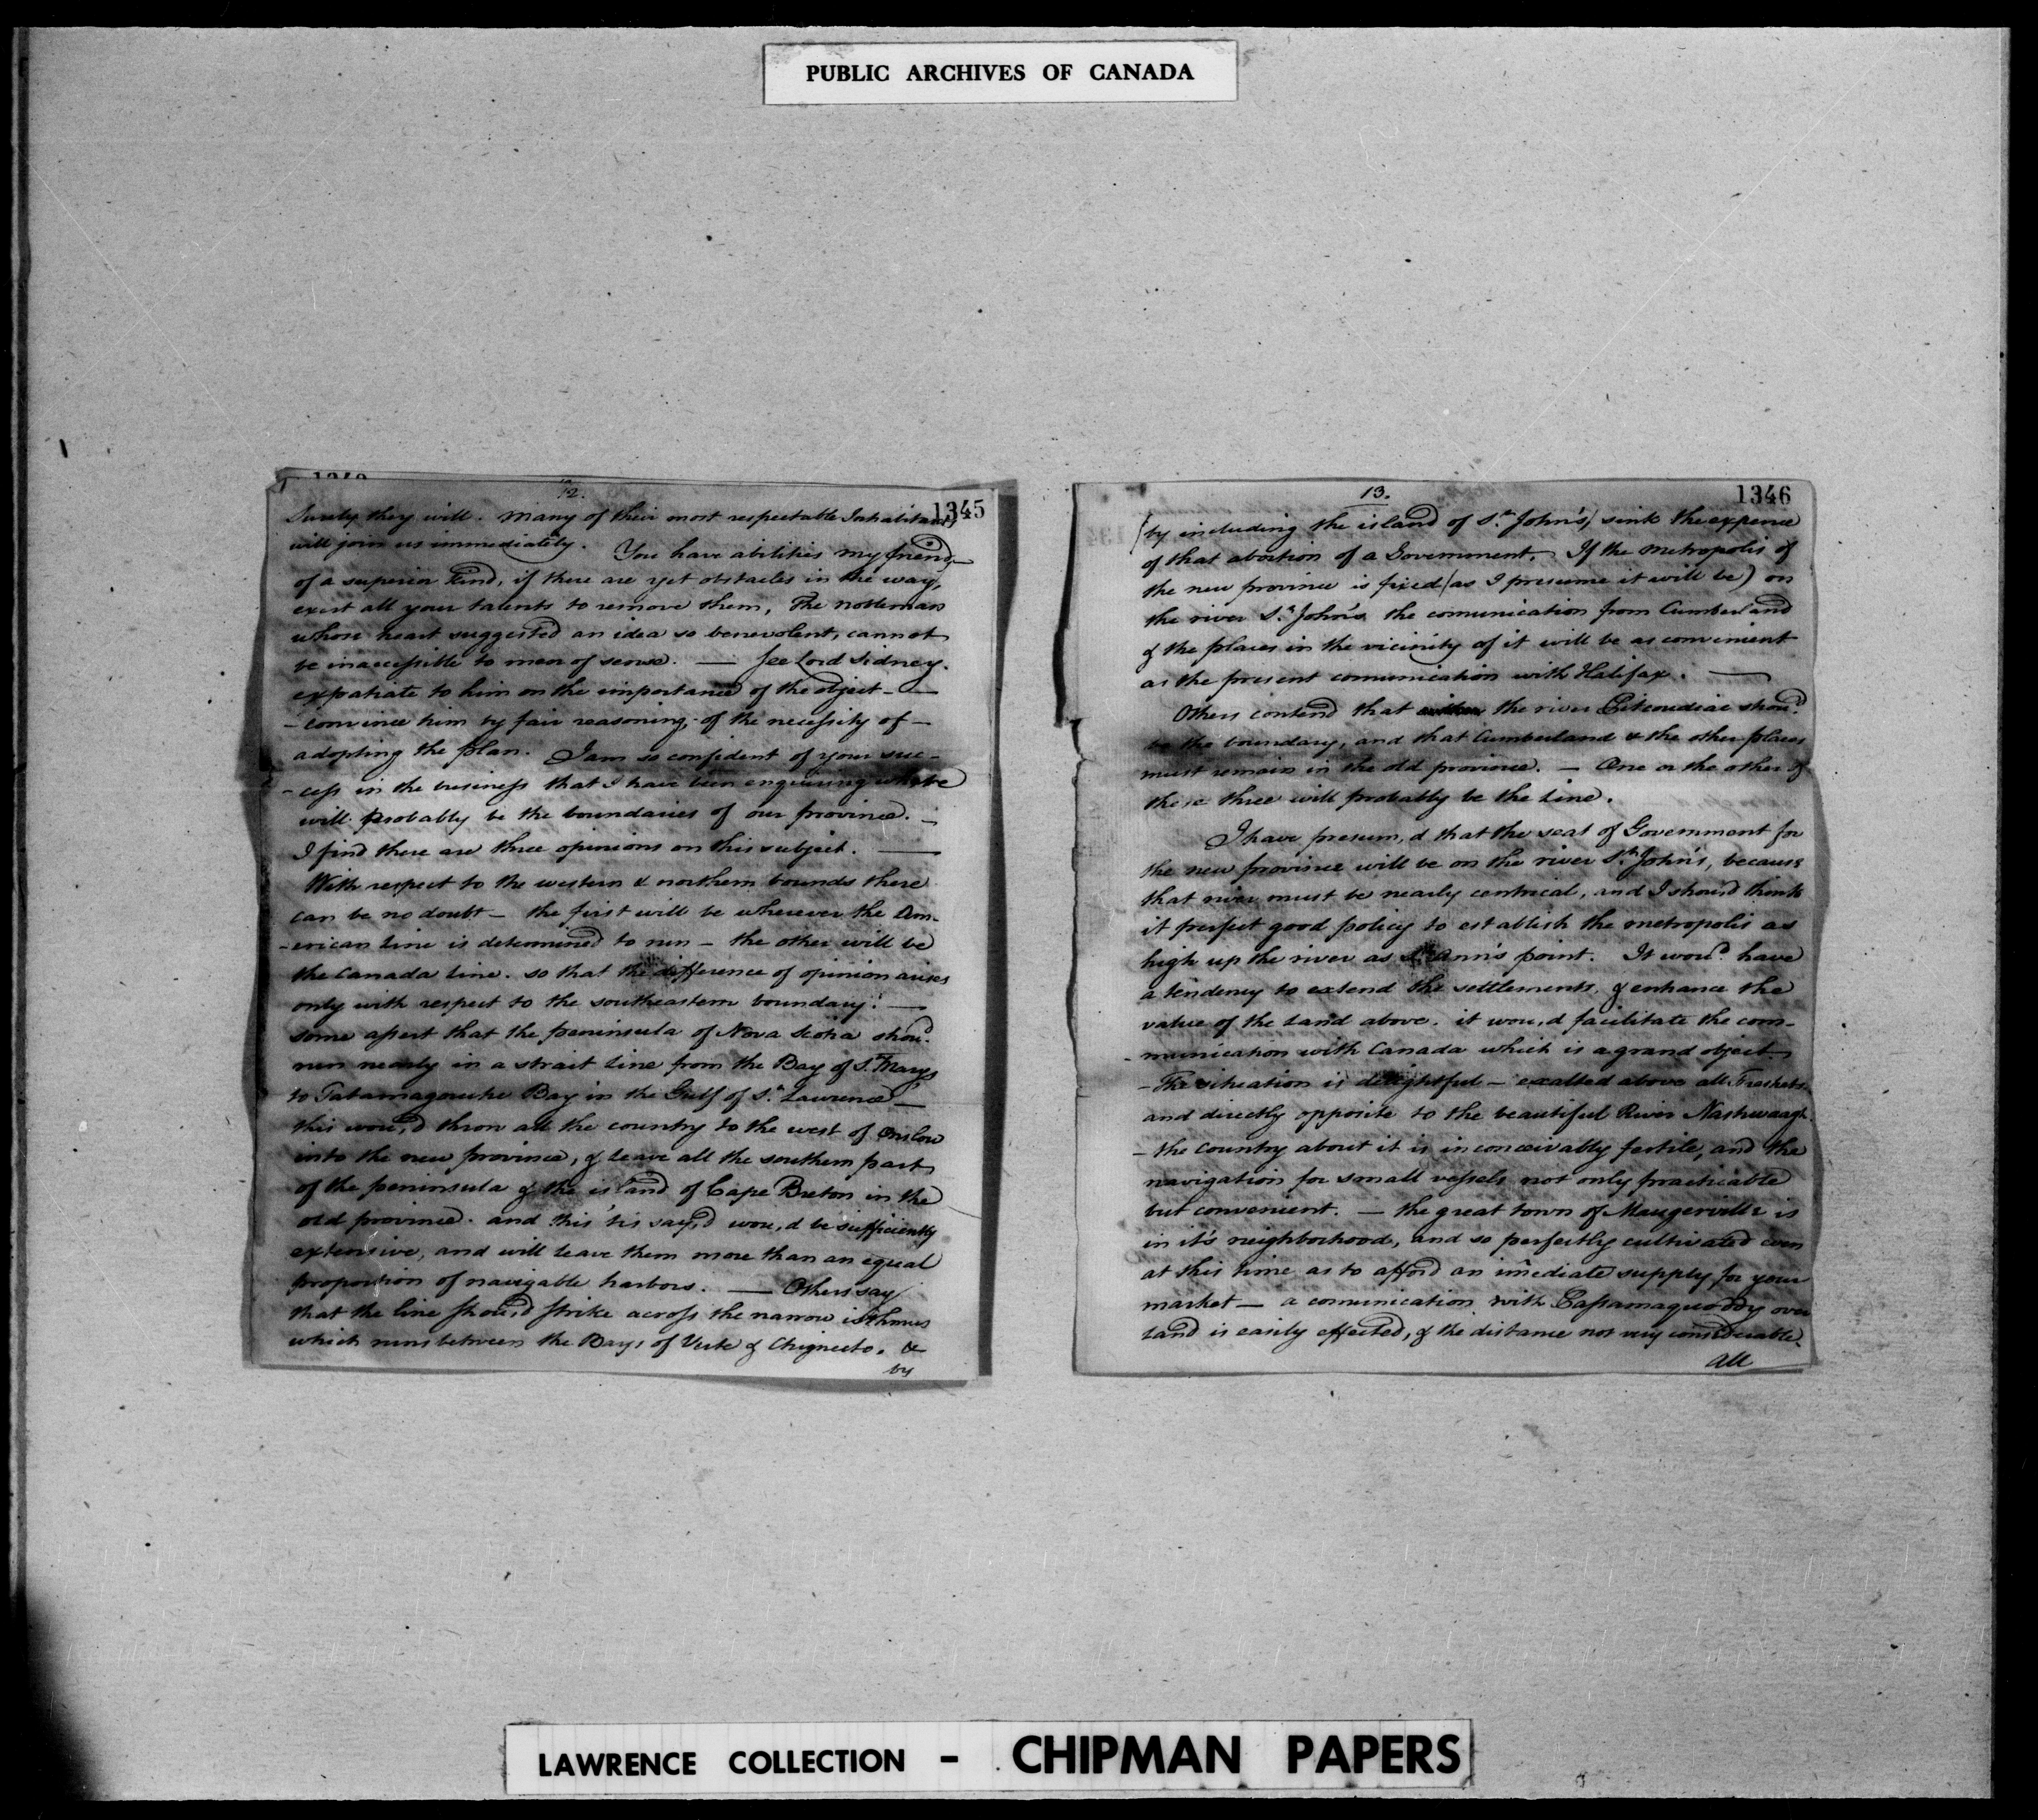 PUBLIC ARCHIVES OF CANADA
12.
1345
Surely they will. Many of their most respectable Inhabitants
will join us immediately. You have abilities my friend,
of a superior kind, if there are yet obstacles in the way,
exert all your talents to remove them, The nobleman
whose heart suggested an idea so benevolent, cannot
be inaccessible to men of sense. — See Lord Sidney.
expatiate to him on the importance of the object —
- convince him by fair reasoning, of the necessity of —
adopting the plan. I am so confident of your suc-
- cess in the business that I have been enquiring where
will probably be the boundaries of our province. —
I find there are three opinions on this subject. —
With respect to the western & northern bounds there
can be no doubt — the first will be wherever the Am-
- erican line is determined to run — the other will be
the Canada line. so that the difference of opinion arises
only with respect to the southeastern boundary. —
some assert that the peninsula of Nova Scotia shou'd
run nearly in a strait line from the Bay of St. Mary's
to Tatamagouche Bay in the Gulf of St. Lawrence —
this wou,d throw all the country to the west of Onslow
into the new province, & leave all the southern part
of the peninsula & the island of Cape Breton in the
old province. and this 'tis say,d wou,d be sufficiently
extensive, and will leave them more than an equal
proportion of navigable harbors. — Others say
that the line shou,d strike across the narrow isthmus
which runs between the Bays of Verte & Chignecto. &
by
13.
1346
(by including the island of St. John's) sink the expence
of that abortion of a Government. If the metropolis of
the new province is fixed (as I presume it will be) on
the river St. John's the comunication from Cumberland
& the places in the vicinity of it will be as convenient
as the present comunication with Halifax. —
Others contend that the river Pitcoudiac shou'd
be the boundary, and that Cumberland & the other places
must remain in the old province. — One or the other of
these three will probably be the line.
I have presum,d that the seat of Government for
the new province will be on the river St. John's, because
that river must be nearly centrical, and I shou,d think
it perfect good policy to establish the metropolis as
high up the river as St. Ann's point. It wou'd have
a tendency to extend the settlements, & enhance the
value of the Land above. it wou,d facilitate the com-
- munication with Canada which is a grand object
- The situation is delightful — exalted above all Freshets
and directly opposite to the beautiful River Nashwaagh.
- the country about it is inconceivably fertile, and the
navigation for small vessels not only practicable
but convenient. — the great town of Maugerville is
in it's neighborhood, and so perfectly cultivated even
at this time as to afford an imediate supply for your
market — a comunication with Passamaquoddy over
land is easily effected, & the distance not very considerable.
All
LAWRENCE COLLECTION - CHIPMAN PAPERS